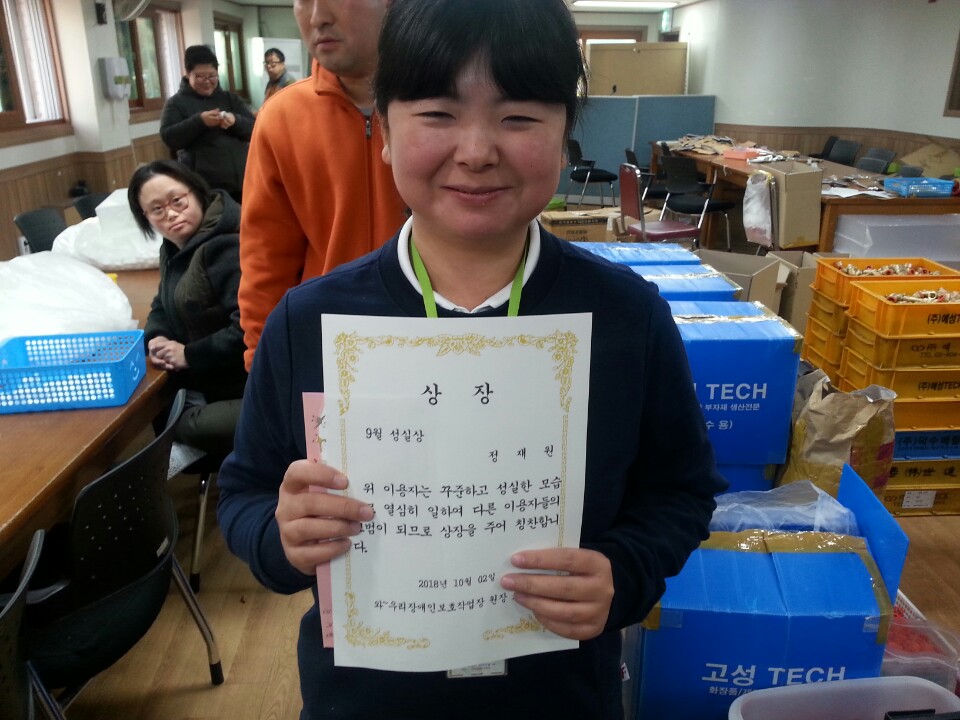 상 장
9월 성실상
정 재 원
위 이용자는 꾸준하고 성실한 모습
열심히 일하여 다른 이용자들의
범이 되므로 상장을 주어 칭찬합니
다.
2018년 10월 02일
와~우리장애인보호작업장 원장
성 TECH
부자재 생산전문
수 용)
고성 TECH
화장품/
(주)예성
(주)예성TE